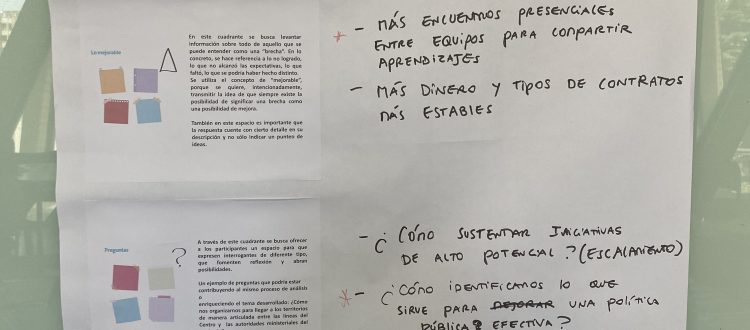 Lo mejorable
En este cuadrante se busca levantar
información sobre todo de aquello que se
puede entender como una "brecha". En lo
concreto, se hace referencia a lo no logrado,
lo que no alcanzó las expectativas, lo que
faltó, lo que se podría haber hecho distinto.
Se utiliza el concepto de "mejorable",
porque se quiere, intencionadamente,
transmitir la idea de que siempre existe la
posibilidad de significar una brecha como
una posibilidad de mejora.
También en este espacio es importante que
la respuesta cuente con cierto detalle en su
descripción y no sólo indicar un punteo de
ideas.
* - MÁS ENCUENTROS PRESENCIALES
ENTRE EQUIPOS PARA COMPARTIR
APRENDIZAJES
- MÁS DINERO Y TIPOS DE CONTRATOS
MÁS ESTABLES
Preguntas
?
A través de este cuadrante se busca ofrecer
a los participantes un espacio para que
expresen interrogantes de diferente tipo,
que fomenten reflexión y abran
posibilidades.
Un ejemplo de preguntas que podría estar
contribuyendo al mismo proceso de análisis
o
enriqueciendo el tema desarrollado: ¿Cómo
nos organizamos para llegar a los territorios
de manera articulada entre las líneas del
Centro y las autoridades ministeriales del
- ¿CÓMO SUSTENTAR INICIATIVAS
DE ALTO POTENCIAL? (ESCALAMIENTO)
* - ¿CÓMO IDENTIFICAMOS LO QUE
SIRVE PARA MEJORAR UNA POLÍTICA
PÚBLICA? EFECTIVA?